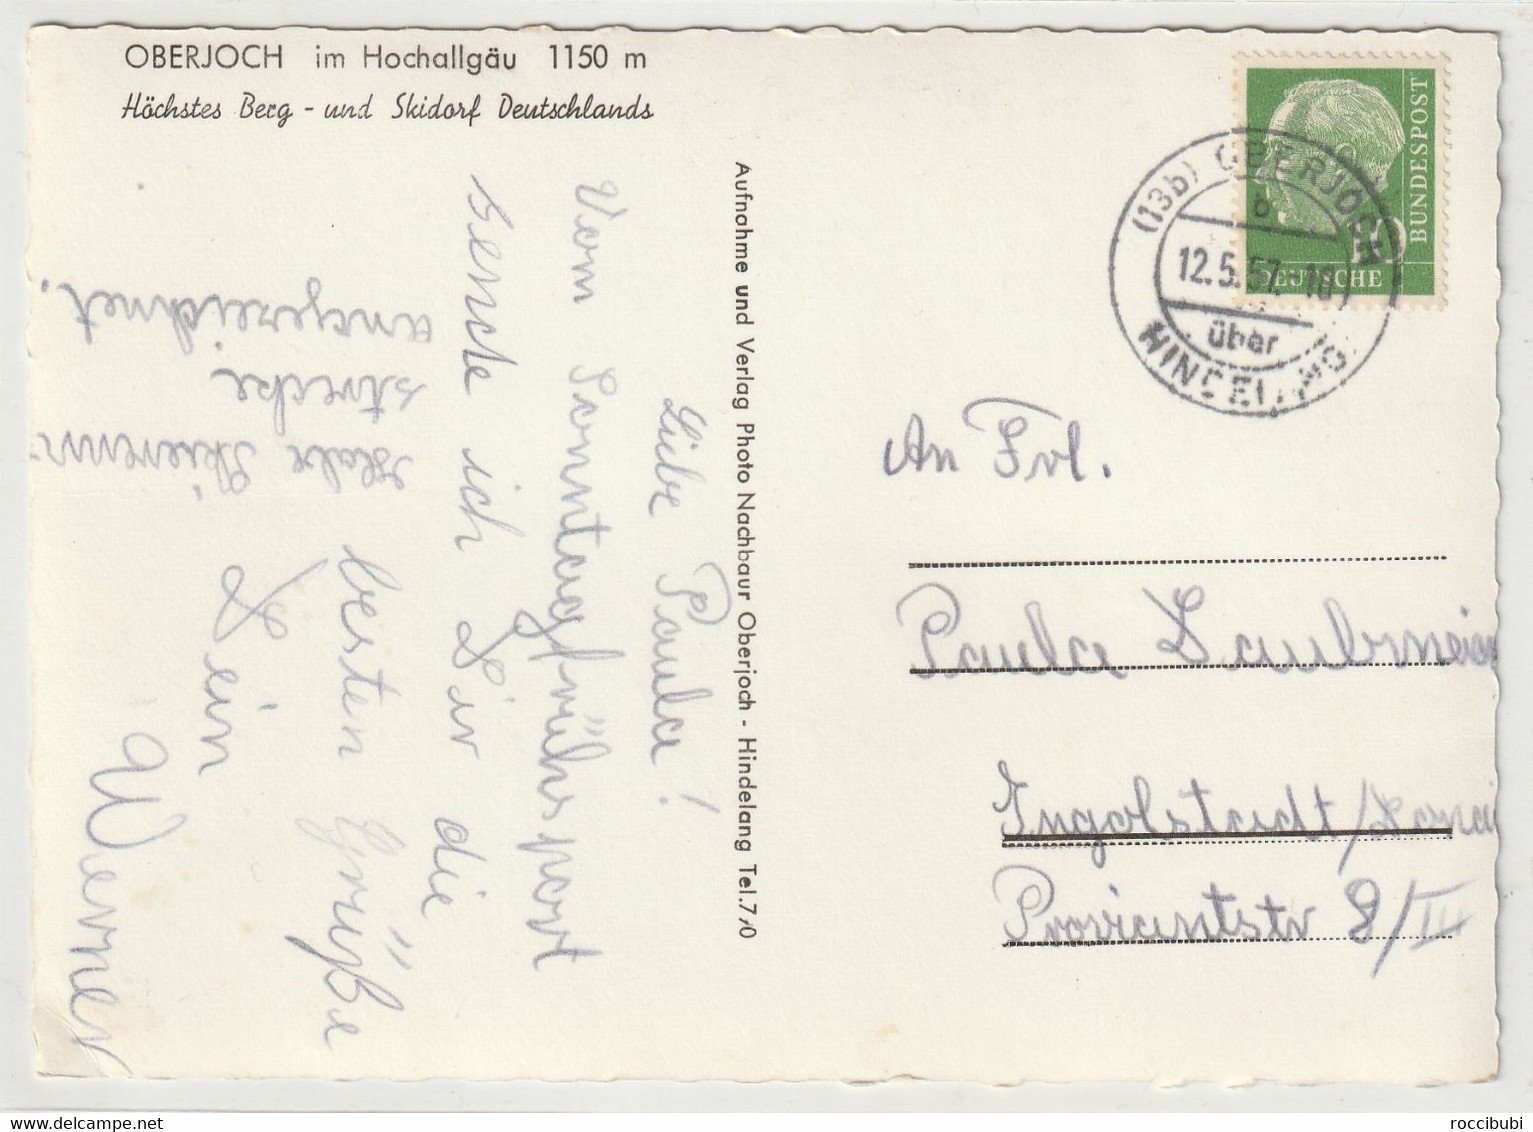 OBERJOCH im Hochallgäu 1150 m
Höchstes Berg - und Skidorf Deutschlands
Liebe Paula!
Vom Sonntagfrühsport
sende ich Dir die
besten Grüße
Dein
Werner
Habe Skirenn-
strecke
angezeichnet.
Aufnahme und Verlag Photo Nachbaur Oberjoch - Hindelang Tel.
DEUTSCHE
BUNDESPOST
10
(13b) OBERJOCH
b
12.5.57.-18
über
HINDELANG
An Frl.
Paula Laubmeier
Ingolstadt/Donau
Proviantstr 8/III
roccibubi